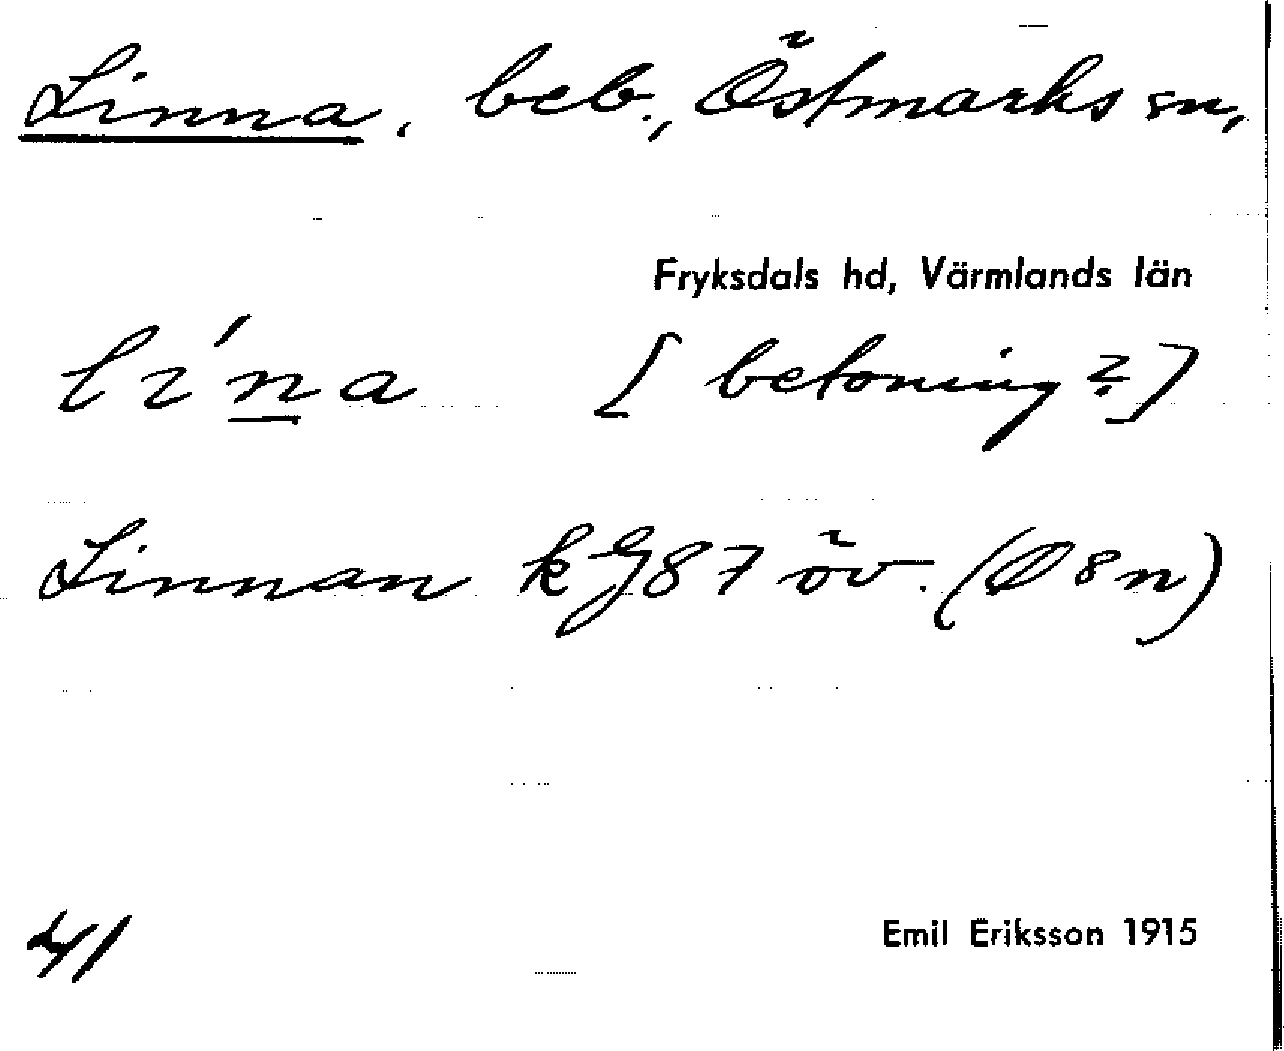 Linna, beb., Östmarks sn,
Fryksdals hd, Värmlands län
lı´na [betoning?]
Linnan kG87 öv. (Ö8n)
41 Emil Eriksson 1915